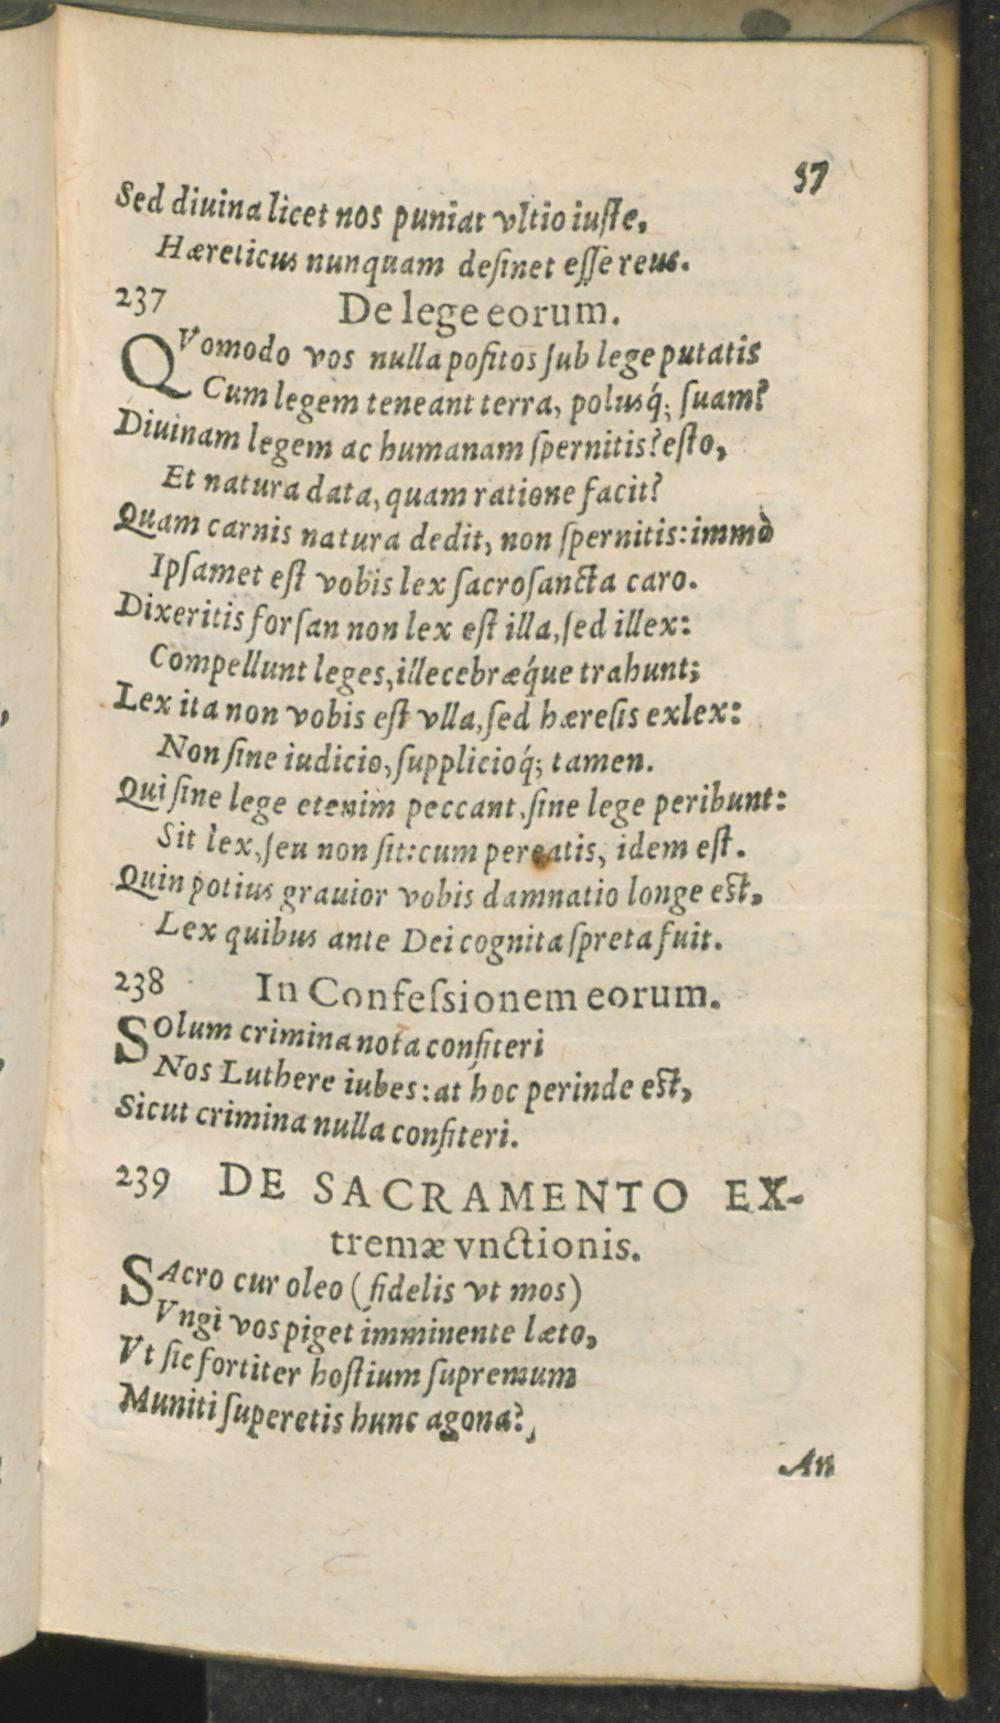 37
Sed diuina licet nos puniat vltio iuſte,
Hæreticus nunquam deſinet eſſe reus.
237 De lege eorum.
QVomodo vos nulla poſitos ſub lege putatis
Cum legem teneant terra, poluśq́; ſuam?
Diuinam legem ac humanam ſpernitis? eſto,
Et natura data, quam ratione facit?
Quam carnis natura dedit, non ſpernitis: immò
Ipſamet eſt vobis lex ſacroſancta caro.
Dixeritis forſan non lex eſt illa, ſed illex:
Compellunt leges, illecebræq́ue trahunt;
Lex ita non vobis eſt vlla, ſed hæreſis exlex:
Non ſine iudicio, ſupplicioq́; tamen.
Qui ſine lege etenim peccant, ſine lege peribunt:
Sit lex, ſeu non ſit: cum pereatis, idem eſt.
Quin potius grauior vobis damnatio longe eſt,
Lex quibus ante Dei cognita ſpreta fuit.
238 In Confeſsionem eorum.
SOlum crimina nota confiteri
Nos Luthere iubes: at hoc perinde eſt,
Sicut crimina nulla confiteri.
239 DE SACRAMENTO EX-
tremæ vnctionis.
SAcro cur oleo (fidelis vt mos)
Vngi vos piget imminente læto,
Vt ſic fortiter hoſtium ſupremum
Muniti ſuperetis hunc agona?
An